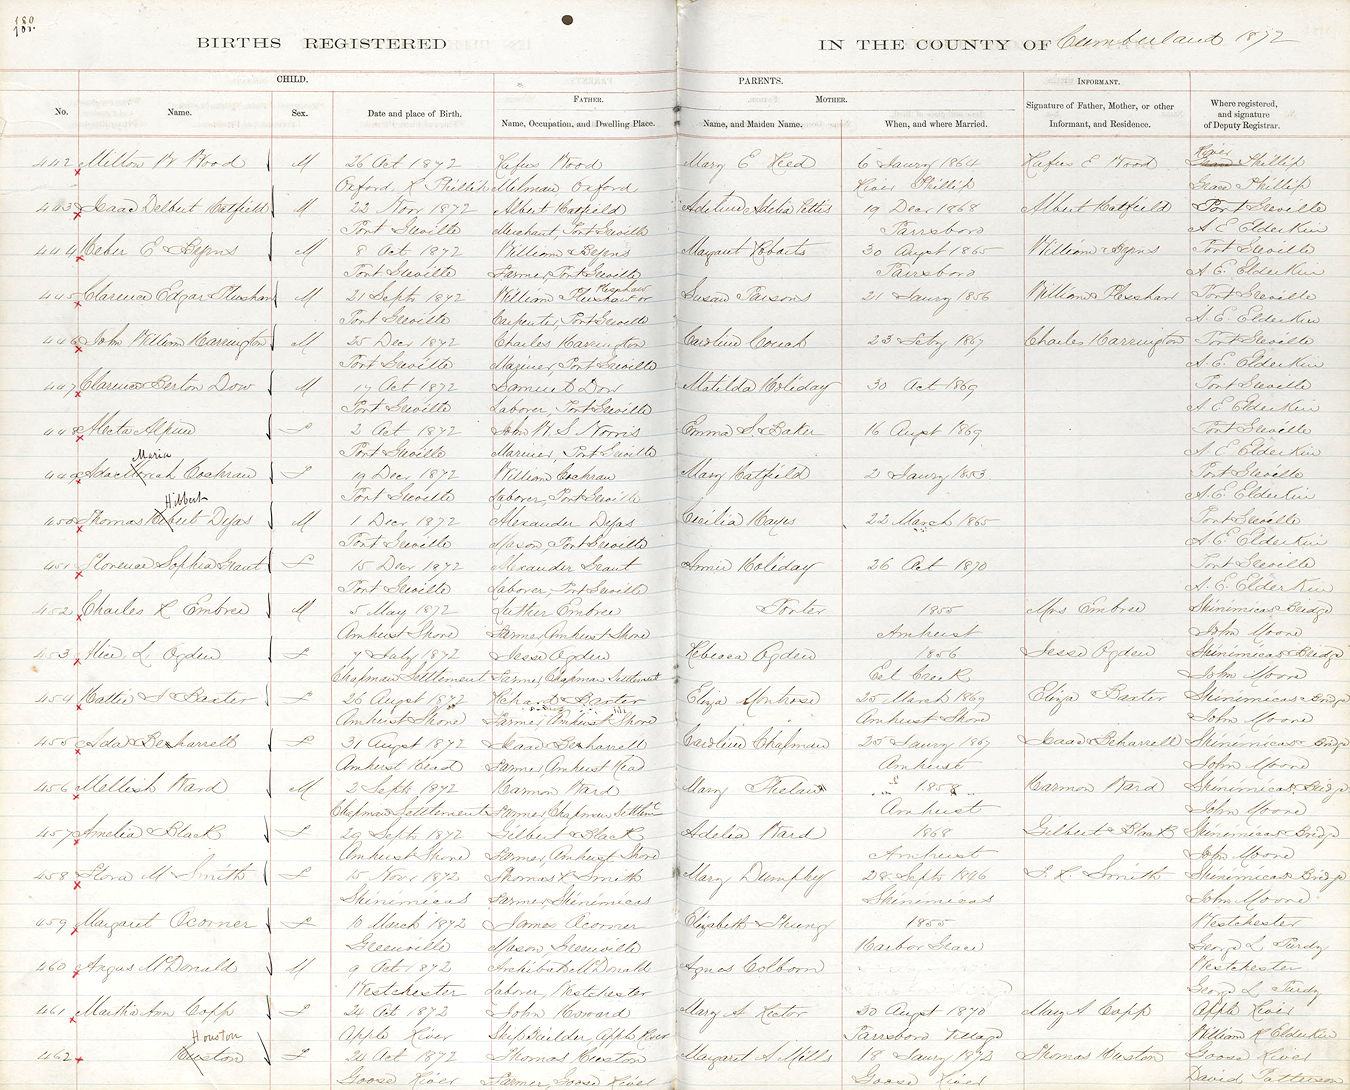 180
BIRTHS REGISTERED IN THE COUNTY OF Cumberland 1872
CHILD. PARENTS. INFORMANT.
FATHER. MOTHER.
No. Name. Sex. Date and place of Birth. Name, Occupation, and Dwelling Place. Name, and Maiden Name. When, and where Married. Signature of Father, Mother, or other Informant, and Residence. Where registered, and signature of Deputy Registrar.
442 Milton W Wood M 26 Oct 1872 Rufus Wood Mary E Reed 6 Jaury 1864 Rufus E Wood River Phillip
Oxford R Phillip Milman Oxford River Phillip Phillip
443 Isaac Delbert Hatfield M 22 Novr 1872 Albert Hatfield Adeline Adelia Pettis 19 Decr 1868 Albert Hatfield Port Greville
Port Greville Merchant, Port Greville Parrsboro A E Elderkin
444 Heber E Byrns M 8 Oct 1872 William Byrns Margaret Roberts 30 Augst 1865 William Byrns Port Greville
Port Greville Farmer, Port Greville Parrsboro A E Elderkin
445 Clarence Edgar M 21 Septr 1872 William or Susan Parsons 21 Jaury 1856 William Port Greville
Port Greville Carpenter, Port Greville A E Elderkin
446 John William Harrington M 25 Decr 1872 Charles Harrington Caroline Couch 23 Feby 1867 Charles Harrington Port Greville
Port Greville Mariner, Port Greville A E Elderkin
447 Clarence Berton Dow M 17 Oct 1872 Samuel Dow Matilda Holiday 30 Oct 1869 Port Greville
Port Greville Laborer, Port Greville A E Elderkin
448 Meta Alpine F 2 Oct 1872 John W. S. Norris Emma S. Baker 16 Augst 1869 Port Greville
Port Greville Mariner, Port Greville A E Elderkin
Maria
449 Ada Cochran F 19 Decr 1872 William Cochran Mary Hatfield 2 Jaury 1853 Port Greville
Port Greville Laborer, Port Greville A E Elderkin
Hibbert
450 Thomas Hebert Dyas M 1 Decr 1872 Alexander Dyas Cecilia Hayes 22 March 1865 Port Greville
Port Greville Mason, Port Greville A E Elderkin
451 Florence Sophia Grant F 15 Decr 1872 Alexander Grant Annie Holiday 26 Oct 1870 Port Greville
Port Greville Laborer, Port Greville A E Elderkin
452 Charles R Embree M 5 May 1872 Luther Embree Porter 1855 Mrs Embree Shinimicas Bridge
Amherst Shore Farmer, Amherst Shore Amherst John Moore
453 Alice L Ogden F 7 July 1872 Jesse Ogden Rebecca Ogden 1856 Jesse Ogden Shinimicas Bridge
Chapman Settlement Farmer, Chapman Settlement Eel Creek John Moore
454 Hattie Baxter F 26 Augst 1872 Baxter Eliza Montrose 25 March 1869 Eliza Baxter Shinimicas Bridge
Amherst Shore Farmer, Amherst Shore Amherst Shore John Moore
455 Ada Beharrell F 31 Augst 1872 Isaac Beharrell Caroline Chapman 25 Jaury 1867 Isaac Beharrell Shinimicas Bridge
Amherst Head Farmer, Amherst Head Amherst John Moore
456 Mellish Ward M 2 Septr 1872 Harmon Ward Mary 1858 Harmon Ward Shinimicas Bridge
Chapman Settlement Farmer, Chapman Settlmt Amherst John Moore
457 Amelia Black F 29 Septr 1872 Gilbert Black Adelia Ward 1868 Gilbert Black Shinimicas Bridge
Amherst Shore Farmer, Amherst Shore Amherst John Moore
458 Flora M Smith F 15 Novr 1872 Thomas R Smith Mary Dumphey 28 Septr Smith Shinimicas Bridge
Shinimicas Farmer, Shinimicas Shinimicas John Moore
459 Margaret Acorner F 10 March 1872 James Acorner Elizabeth Strung 1855 Westchester
Greenville Mason, Greenville Harbor Grace George L Purdy
460 Angus McDonald M 9 Octr 1872 Archibald McDonald Agnes Colborn Westchester
Westchester Laborer, Westchester George L Purdy
461 Martha Ann Copp F 24 Oct 1872 John Howard Mary A Rector 30 Augst 1870 Mary A Copp Apple River
Apple River Ship Builder, Apple River Parrsboro Village William R Elderkin
Houston
462 Huston F 24 Oct 1872 Thomas Huston Margaret A Mills 18 Jaury 1872 Thomas Huston Goose River
Goose River Farmer, Goose River Goose River David Patterson